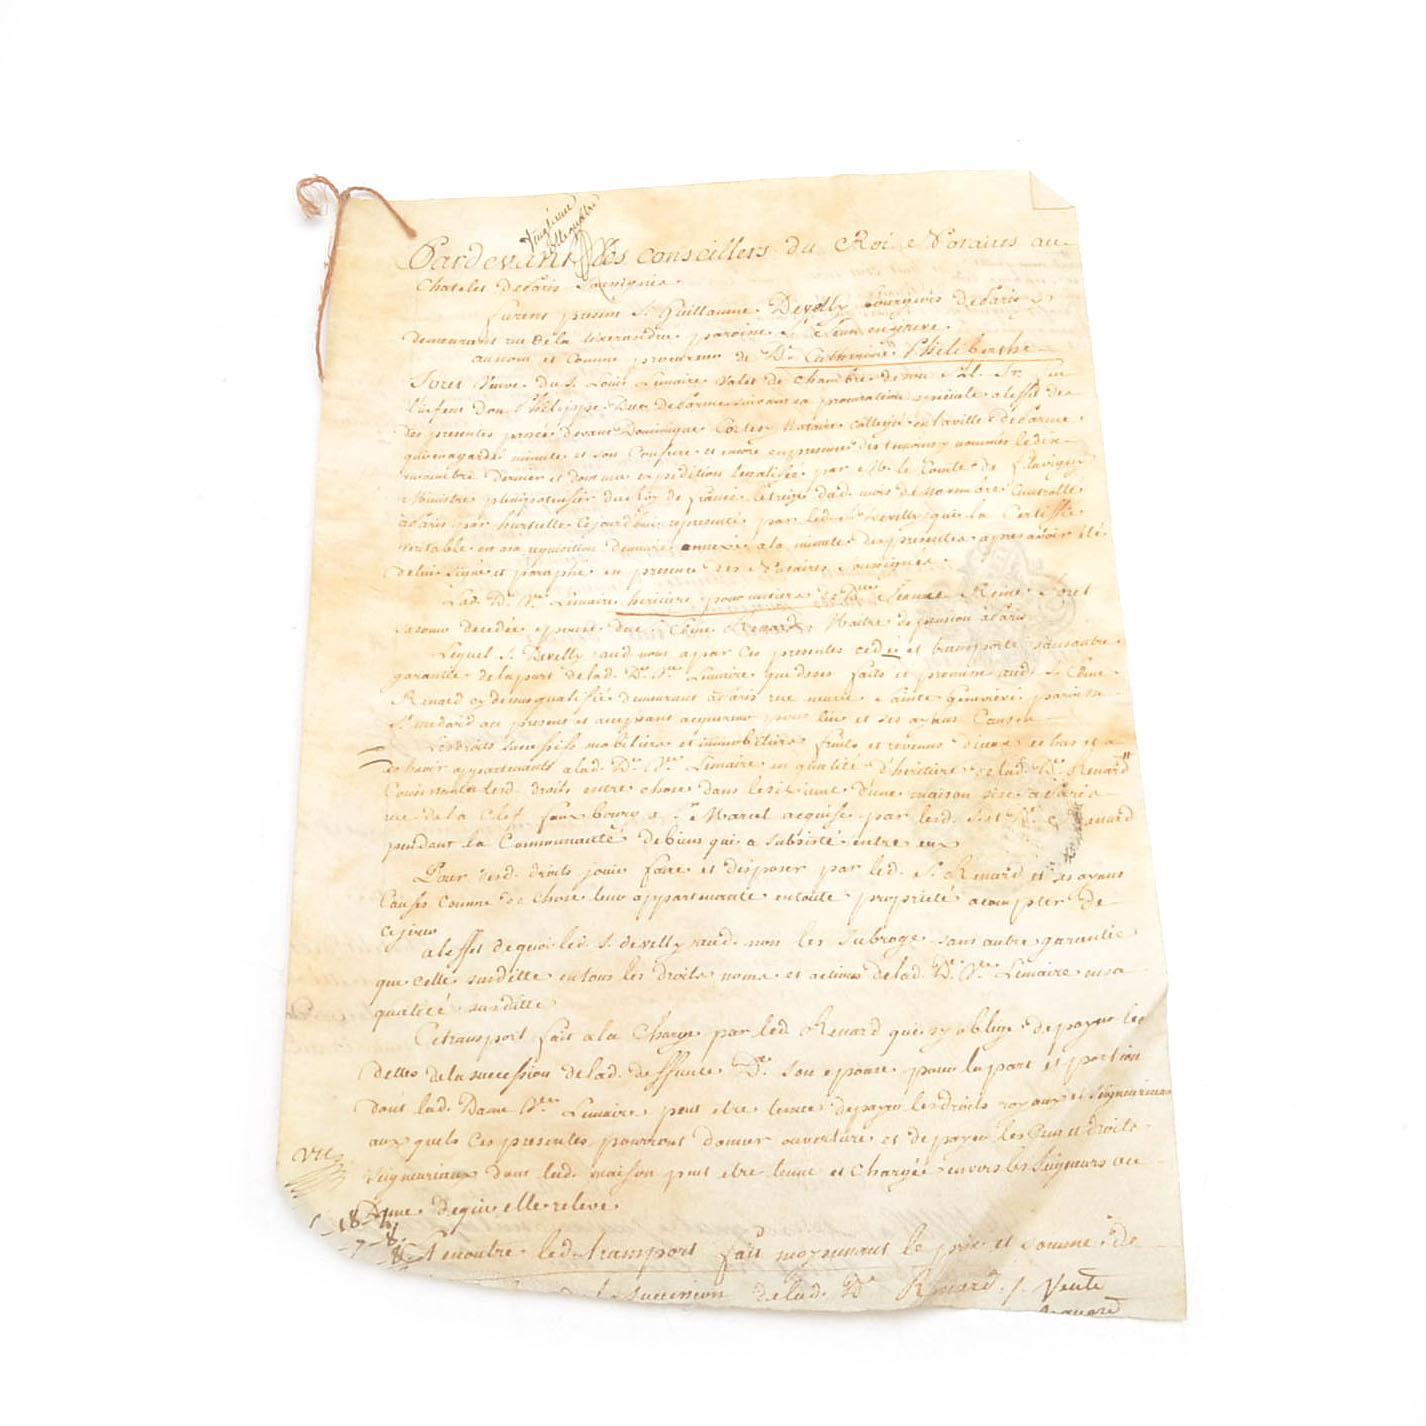 Vingtieme
Pardevant Les conseillers du Roi Notaires au
Chatelet de Paris Soussignés.
furent present S. Guillaume Develly bourgeois de Paris
demeurant rue de la tixerandrie paroisse St Jean en greve.
au nom et comme procureur de De Catherine Pheliberthe
Joret Veuve du S. Louis Lemaire Valet de Chambre de
L'infant don Philippe Duc de Parme suivant sa procuration speciale a leffet des
des presentes passée devant Dominique Notaire Collegié en la ville de Parme
qui en a gardé minute et son Confrere et encore en presence des temoins y nommés le dix
novembre dernier et dont une expedition legalisée par M. le Comte de Flavigny
Ministre plenipotentier du Roy de france le treize dud. mois de novembre Controllé
a Paris par hurtelle cejourd'hui representé par led. S. Develly qui la Certiffié
veritable en sa requisition demeuré annexé a la minute des presentes apres avoir été
de lui signé et paraphé en presence des Notaires Soussignés.
Lad. De Ve Lemaire heritiere pour un tiers de De Jeanne Reine Joret
sa soeur decedée epouse du S. Renard Maitre de pension à Paris
Lequel S. Develly aud. nom a par ces presentes cedé et transporté sans autre
garantie de la part de lad. De Ve Lemaire que de ses faits et promesses aud. S.
Renard cy dessus qualifié demeurant à Paris rue neuve Sainte Genevieve paroisse
St medard a ce present et acceptant acquereur pour lui et ses ayans Cause
Les droits successifs mobiliers et immobiliers fruits et revenus d'iceux echus et a
echeoir appartenants a lad. De Ve Lemaire en qualité d'heritiere de lad. De Renard
Consistants lesd. droits entre chose dans le sixieme d'une maison sise a Paris
rue de la Clef faux bourg St Marcel acquise par lesd. S. et De Renard
pendant la Communauté de biens qui a subsisté entre eux
Pour desd. droits jouir faire et disposer par led. S. Renard et ses ayans
Causes comme de chose leur appartenante en toute proprieté a compter de
ce jour
a leffet de quoi led. S. develly aud. nom les subroge sans autre garantie
que celle susditte en tous les droits noms et actions de lad. De Ve Lemaire en sa
qualité susditte
Ce transport fait a la Charge par led Renard qui s'y oblige de payer les
dettes de la succession de lad. deffunte De. son epouse pour la part et portion
dont lad. Dame Ve Lemaire peut etre tenue de payer les droits royaux et seigneuriaux
aux quels ces presentes pourront donner ouverture et de payer les Cens et droits
seigneuriaux dont lad. maison peut etre tenue et chargée envers les Seigneurs ou
Dame de qui elle releve.
Et encontre led. transport fait moyennant le prix et somme de
succession de lad. De Renard. Vente
Renard